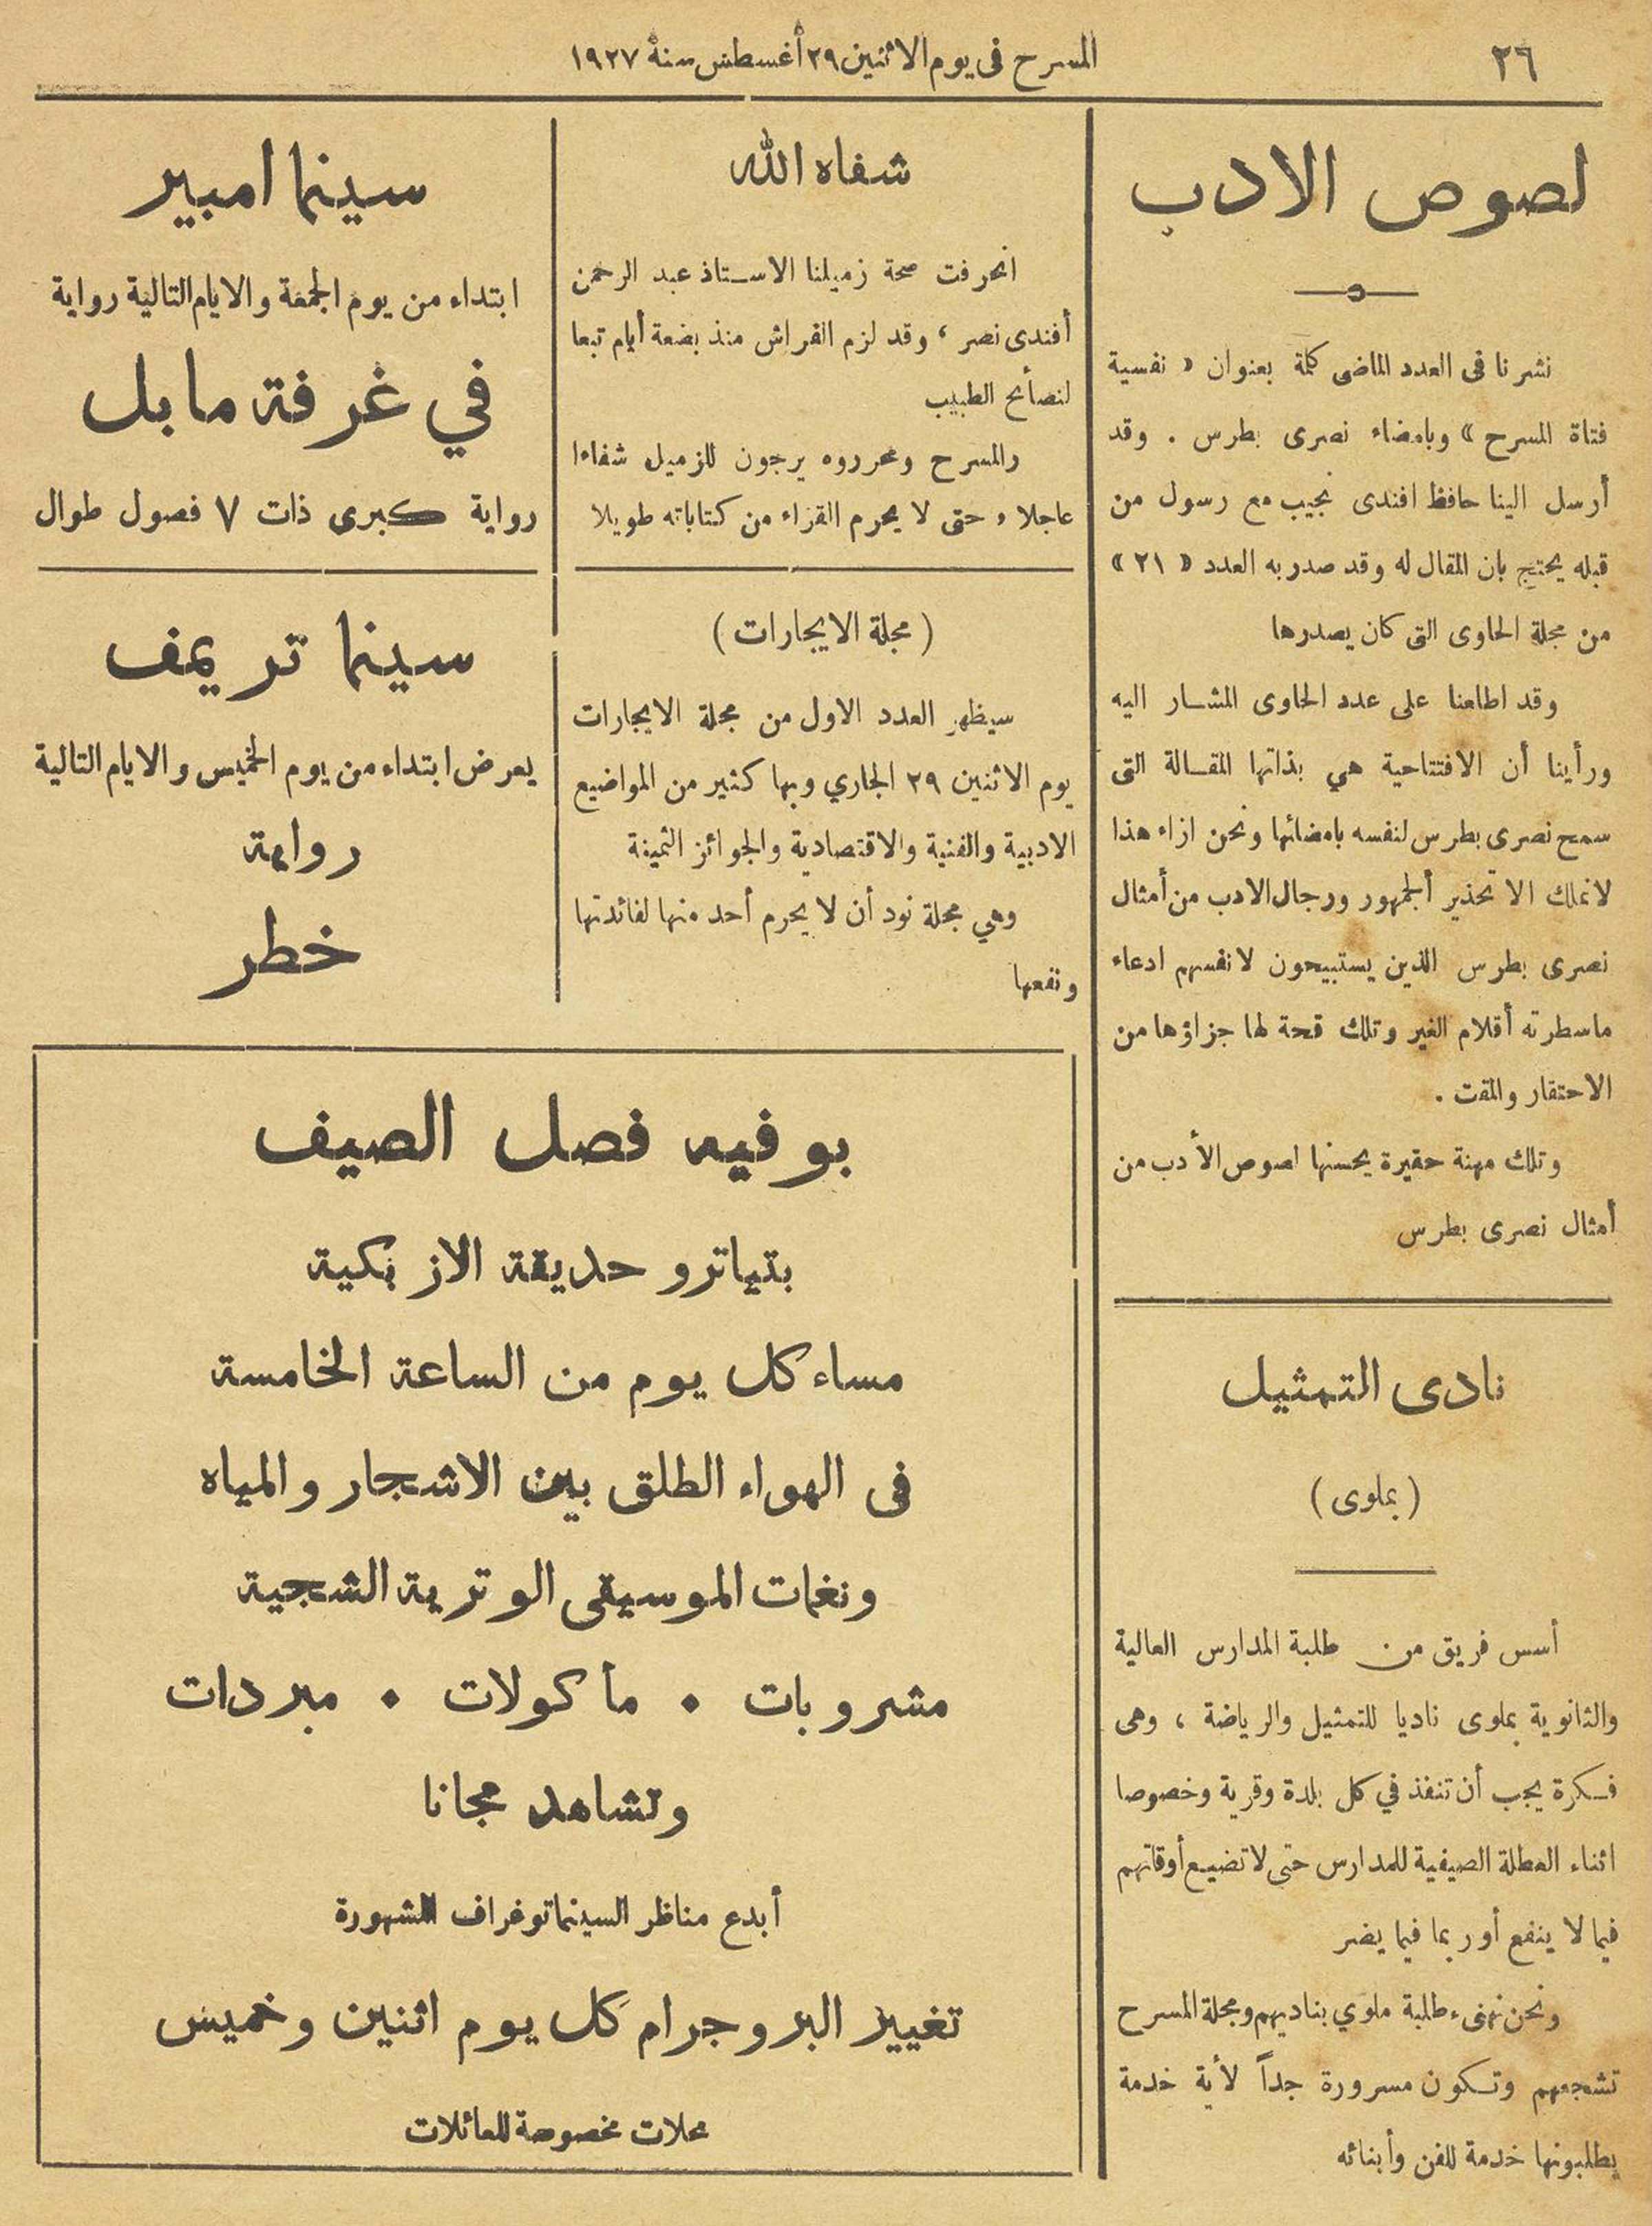 ٢٦
المسرح فى يوم الاثنين ٢٩ أغسطس سنة ١٩٢٧
لصوص الادب
نشرنا فى العدد الماضى كلمة بعنوان « نفسية
فتاة المسرح » وبامضاء نصرى بطرس . وقد
أرسل الينا حافظ افندى نجيب مع رسول من
قبله يحتج بان المقال له وقد صدر به العدد « ٢١ »
من مجلة الحاوى التى كان يصدرها
وقد اطلعنا على عدد الحاوى المشار اليه
ورأينا أن الافتتاحية هي بذاتها المقالة التى
سمح نصرى بطرس لنفسه بامضائها ونحن ازاء هذا
لانملك الا تحذير ألجمهور ورجال الادب من أمثال
نصرى بطرس الذين يستبيحون لانفسهم ادعاء
ماسطرته أقلام الغير وتلك قحة لها جزاؤها من
الاحتقار والمقت .
وتلك مهنة حقيرة يحسنها لصوص الأدب من
أمثال نصرى بطرس
نادى التمثيل
( بملوى )
أسس فريق من طلبة المدارس العالية
والثانوية بملوى ناديا للتمثيل والرياضة ، وهى
فكرة يجب أن تنفذ في كل بلدة وقرية وخصوصا
اثناء العطلة الصيفية للمدارس حتى لا تضيع أوقاتهم
فيما لا ينفع أو ربما فيما يضر
ونحن نهنىء طلبة ملوي بناديهم ومجلة المسرح
تشجعهم وتكون مسرورة جداً لأية خدمة
يطلبونها خدمة للفن وأبنائه
شفاه الله
انحرفت صحة زميلنا الاستاذ عبد الرحمن
أفندى نصر ، وقد لزم الفراش منذ بضعة أيام تبعا
لنصأئح الطبيب
والمسرح ومحرروه يرجون للزميل شفاءا
عاجلا و حتى لا يحرم القراء من كتاباته طويلا
( مجلة الايجارات )
سيظهر العدد الاول من مجلة الايجارات
يوم الاثنين ٢٩ الجاري وبها كثير من المواضيع
الادبية والفنية والاقتصادية والجوائز الثمينة
وهي مجلة نود أن لا يحرم أحد منها لفائدتها
ونفعها
سينما امبير
ابتداء من يوم الجمعة والايام التالية رواية
في غرفة مابل
رواية كبرى ذات ٧ فصول طوال
سينما تريمف
يعرض ابتداء من يوم الخميس والايام التالية
رواية
خطر
بوفيه فصل الصيف
بتياترو حديقة الازبكية
مساء كل يوم من الساعة الخامسة
فى الهواء الطلق بين الاشجار والمياه
ونغمات الموسيقى الوترية الشجية
مشروبات • مأكولات • مبردات
وتشاهد مجانا
أبدع مناظر السينماتوغراف المشهورة
تغيير البروجرام كل يوم اثنين وخميس
محلات مخصوصة للعائلات